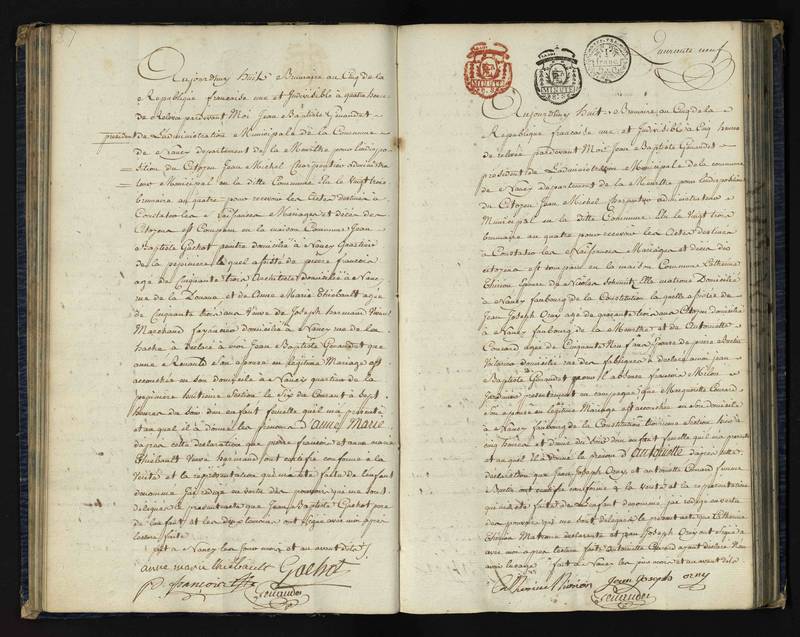 Aujourdhuy huit Brumaire an Cinq de la
Republique françoise une et Indivisible à quatre heures
de relevée pardevant Moi Jean Baptiste Geraudet
président de L'administration Municipale de la Commune
de Nancy departement de la Meurthe pour lindispo
sition du Citoyen Jean Michel Charpentier administra
teur Municipal en la ditte Commune Elu le Vingt trois
brumaire an quatre pour recevoir les Actes destinés à
Constater les Naissances Mariages et décès des
Citoyens est Comparu en la maison Commune Jean
Baptiste Gochot peintre domicilié à Nancy Quartier
de la pepiniere lequel assisté de pierre francois
age de Cinquante trois Architecte domicilié à Nancy
rue de la et de Anne Marie Thiebault agée
de Cinquante trois ans Veuve de Joseph harmand
Marchand fayancier domicilié à Nancy rue de la
hache à declaré à moi Jean Baptiste Geraudet que
anne son epouse en legitime Mariage est
accouchée en son domicile à Nancy quartier de la
pepiniere huitieme Section le Six du Courant à Sept
heures du Soir dun enfant femelle quil ma presenté
et auquel il a donné les prenoms d'anne Marie
dapres cette declaration que pierre francois et anne marie
Thiebault Veuve harmand ont certifié conforme à la
Verité et la représentation qui ma été faite de lenfant
denommé jai redigé en vertu des pouvoirs qui me sont
delegués le present acte que Jean Baptiste Gochot pere
de lenfant et les deux temoins ont signé avec moi apres
lecture faite
fait à Nancy les jour mois et an avant dits
anne marie thiebault Gochot
P. francois
Geraudet
MINUTE
MINUTE
Quarante neuf
Aujourdhuy huit Brumaire an Cinq de la
Republique francoise une et Indivisible à Cinq heures
de relevée pardevant Moi Jean Baptiste Geraudet
président de L'administration Municipale de la commune
de Nancy departement de la Meurthe pour lindisposition
du Citoyen Jean Michel Charpentier administrateur
Municipal en la Ditte Commune Elu le Vingt trois
brumaire an quatre pour recevoir les Actes destinés
à Constater les Naissances Mariages et décès des
citoyens est comparu en la maison Commune Catherine
Thirion Epouse de Nicolas matrone Domiciliée
à Nancy faubourg de la Constitution la quelle assistée de
Jean Joseph Orny age de quarante trois ans Citoyen domicilié
à Nancy faubourg de la Meurthe et de Antoinette
Conrard agée de Cinquante Neuf ans femme de pierre
domiciliée rue des fabriques à declaré à moi jean
Baptiste Geraudet que pour l'absence francois
Jardinier presentement en campagne que Marguerite Conrard
son epouse en legitime Mariage est accouchée en son domicile
à Nancy faubourg de la Constitution Section hier à
Cinq heures et demie du Soir dun enfant femelle quil ma presenté
et auquel il a donné le prenom d'antoinette dapres cette
declaration que Jean Joseph Orny et antoinette Conrard femme
ont certifié conforme à la Verité et la representation
qui ma été faite de Lenfant denommé jai rédigé en vertu
des pouvoirs qui me sont delegués le present acte que Catherine
Thirion Matrone declarante et que Joseph Orny ont signé
avec moi apres lecture faite Antoinette Conrard ayant declaré Nen
avoir lusage fait à Nancy les jour mois et an avant dits
Catherine Thirion Jean Joseph orny
Geraudet